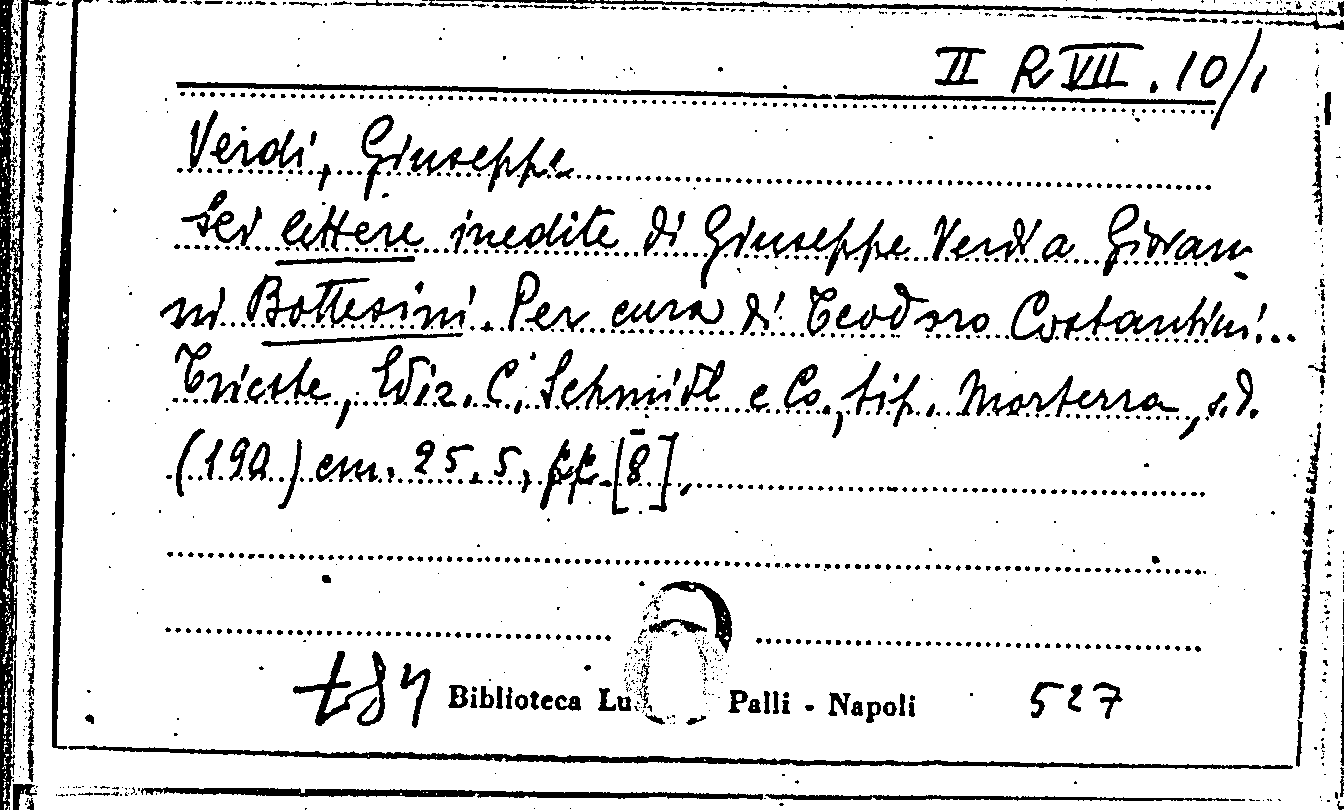 II R VII . 10/1
Verdi, Giuseppe
Sei lettere inedite di Giuseppe Verdi a Giovan
ni Bottesini. Per cura di Teodoro Costantini...
Trieste, Ediz. C. Schmidl e Co., tip. Morterra, s.d.
cm. 25.5, pp. [8],
Biblioteca Lu Palli - Napoli 527